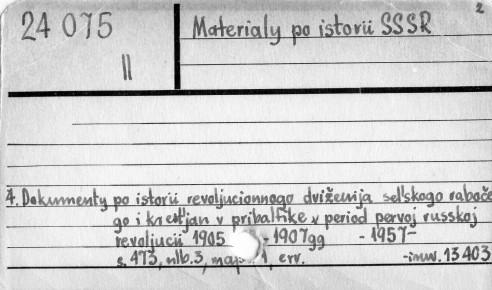 24 075
Materialy po istorii SSSR
2
II
4. Dokumenty po istorii revoljucionnogo dviženija sel'skogo raboče
go i krest'jan v pribaltike v period pervoj russkoj
revoljucii 1905 - 1907gg - 1957-
s. 473, nlb.3, 1, erv. -inw. 13403